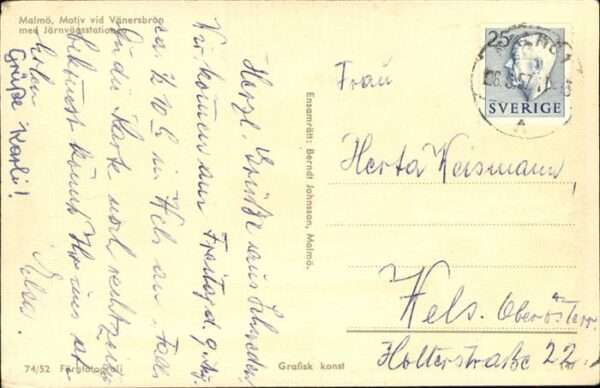 Malmö, Motiv vid Vänersbron
med Järnvägsstationen
Herzl. Grüße aus Schweden
Wir kommen am Freitag d. 9. Aug.
ca. ½ 10 h in Wels an. Falls
Du die Karte noch rechtzeitig
bekömst könnt Ihr uns
holen
Grüße Karli!
74/52
Grafisk konst
Ensamrätt: Berndt Johnsson, Malmö.
25
SVERIGE
Frau
Herta Weismann
Wels. Oberösterr.
Holterstraße 22